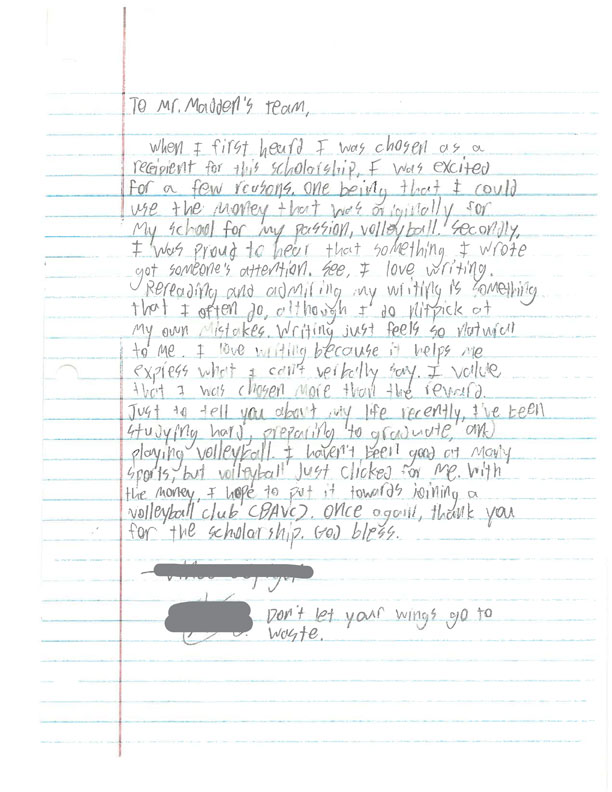 To Mr. Madden's team,
When I first heard I was chosen as a
recipient for this scholarship, I was excited
for a few reasons. One being that I could
use the money that was originally for
my school for my passion, volleyball. Secondly,
I was proud to hear that something I wrote
got someone's attention. See, I love writing.
Rereading and admiring my writing is something
that I often do, although I do nitpick at
my own mistakes. Writing just feels so natural
to me. I love writing because it helps me
express what I can't verbally say. I value
that I was chosen more than the reward.
Just to tell you about my life recently, I've been
studying hard, preparing to graduate, and
playing volleyball. I haven't been good at many
sports, but volleyball just clicked for me. With
the money, I hope to put it towards joining a
volleyball club (BAVC). Once again, thank you
for the scholarship. God bless.
Don't let your wings go to
waste.